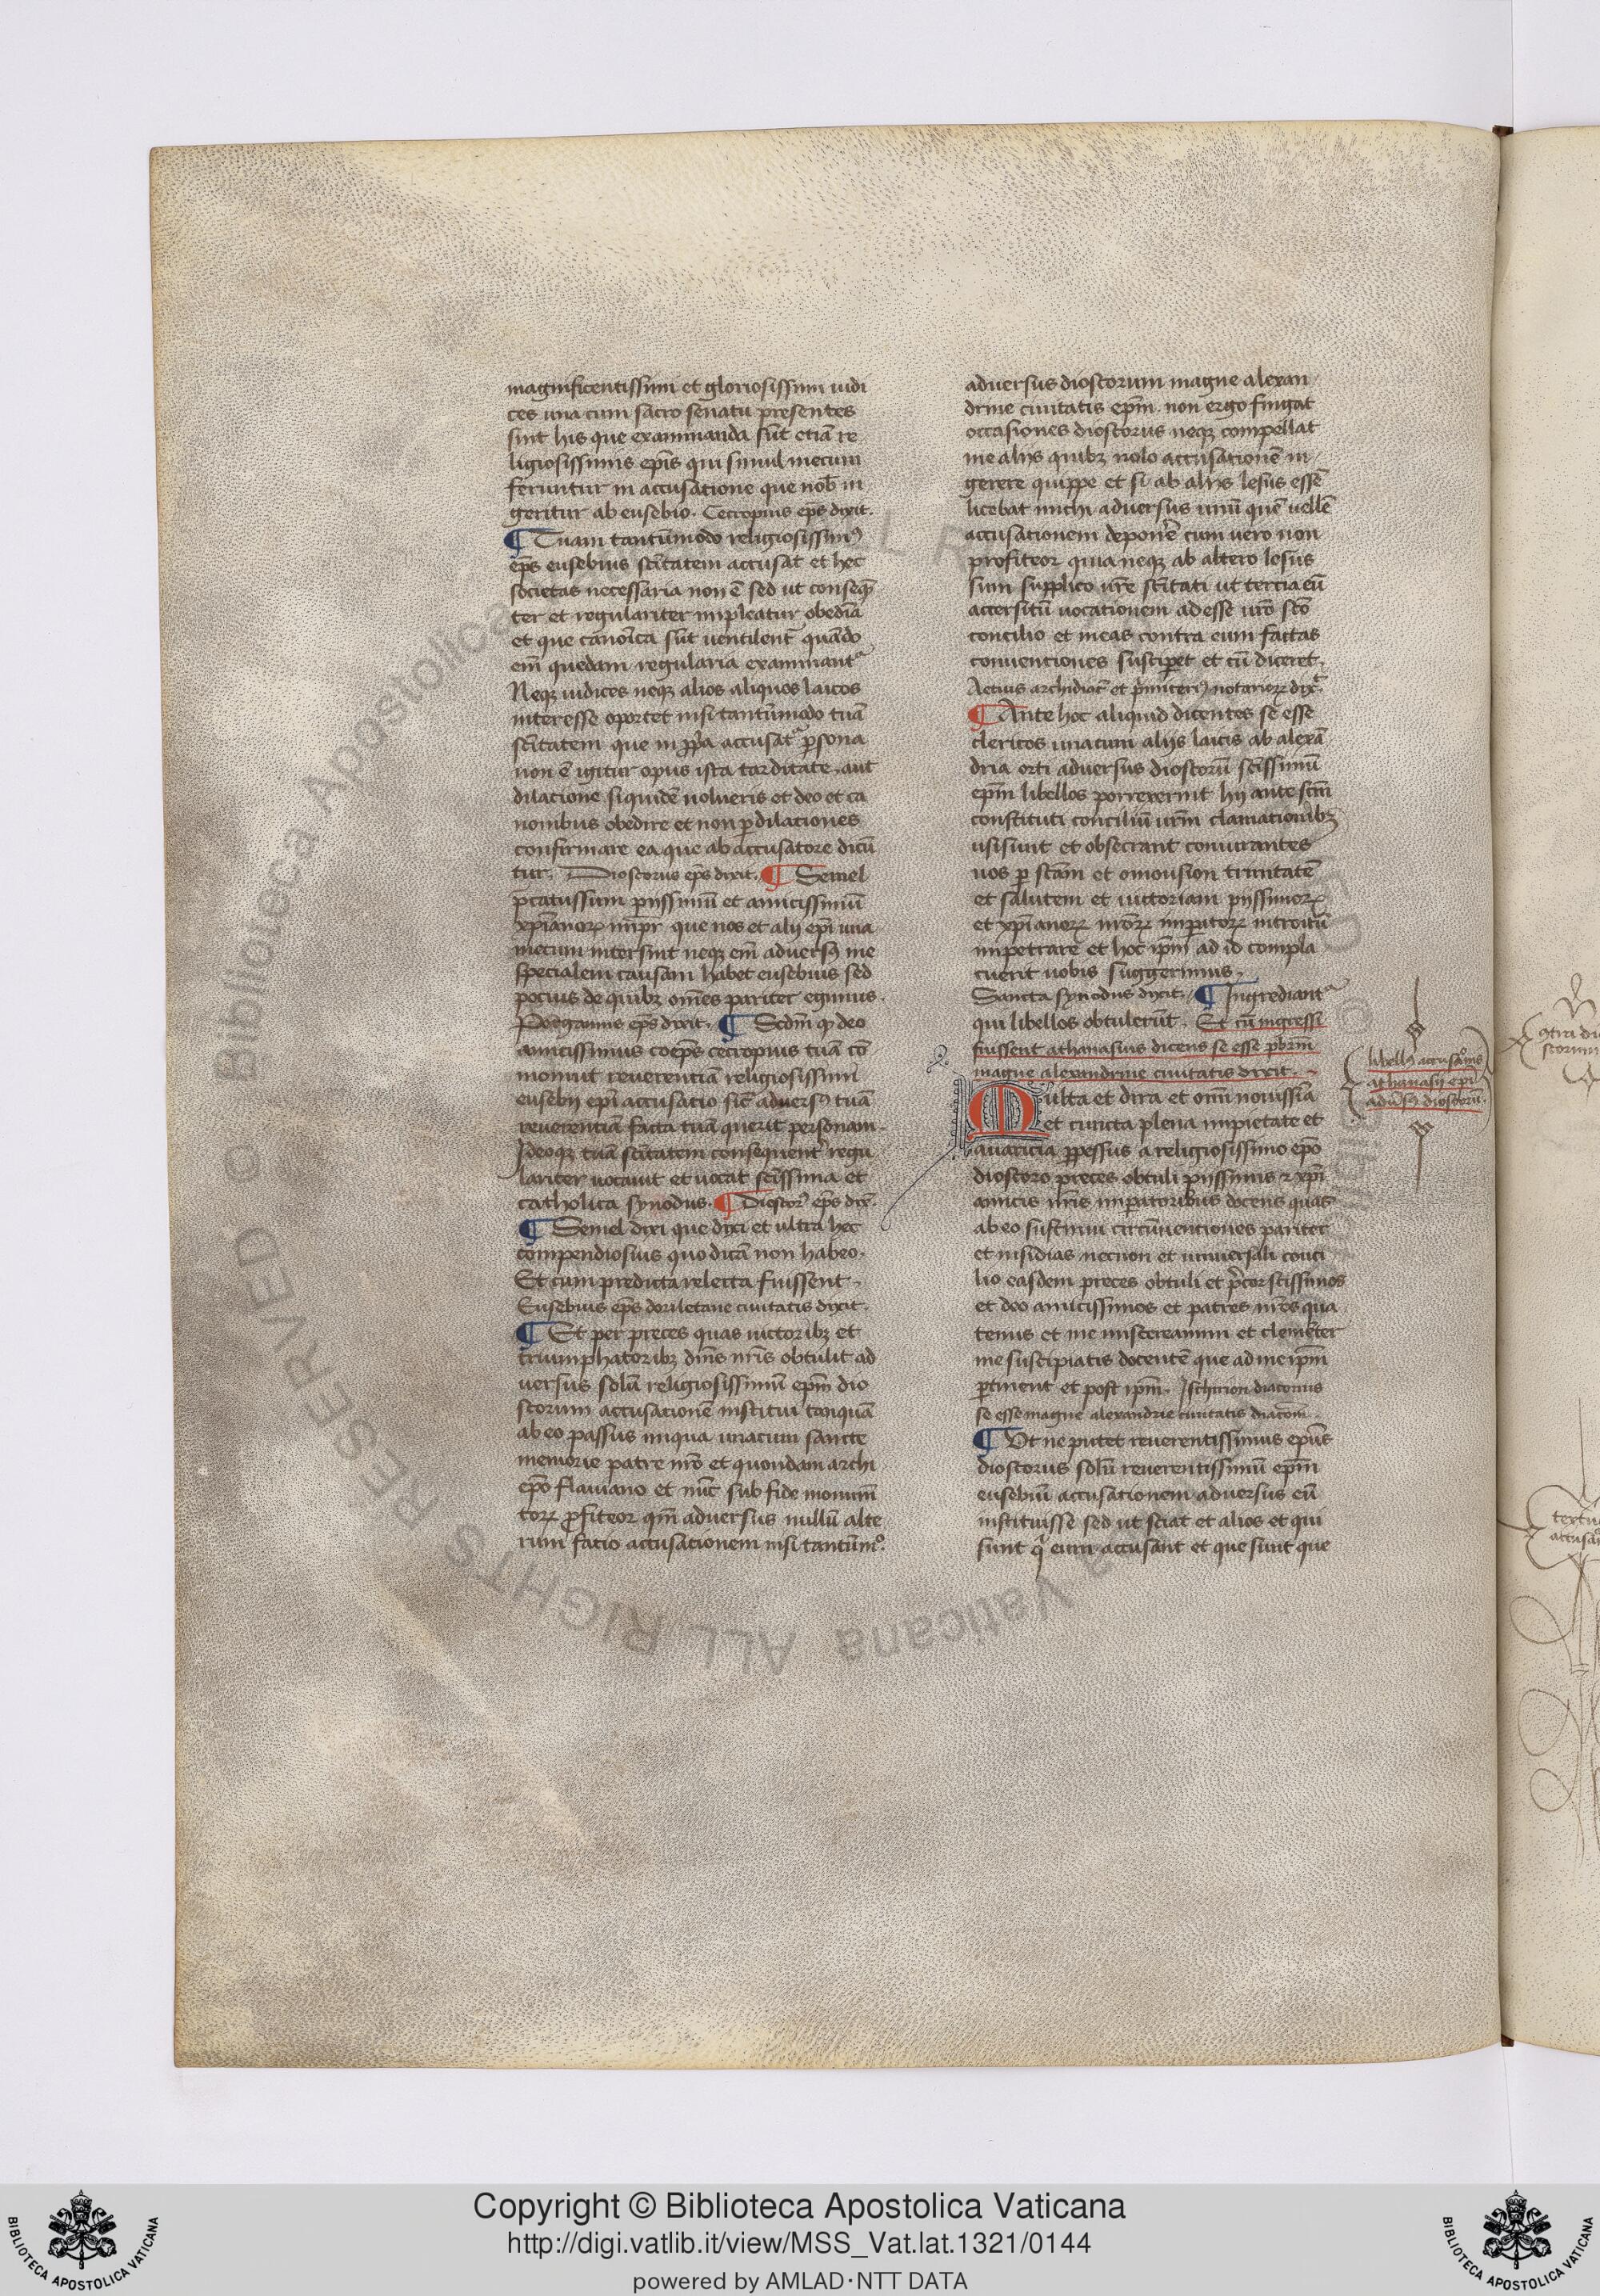 magnificentissimi et gloriosissimi iudi
ces una cum sacro senatu presentes
sint his que examinanda sūt etiā re
ligiosissimis ep̄is qui simul mecum
feruntur in accusatione que nob̄ in
geritur ab eusebio. Cecropius ep̄s dixit.
¶ Tuam tantūmodo religiosissimꝰ
ep̄s eusebius sc̄itatem accusat et hec
societas necessaria non ē sed ut conseq̄
ter et regulariter impleatur obediā
et que canōica sūt uentilent᷑ quādo
em̄ quedam regularia examinant᷑
Neqꝫ iudices neqꝫ alios aliquos laicos
interesse oportet nisi tantūmodo tuā
sc̄itatem que in ꝓp̄a accusat᷑ ꝑsona
non ē igitur opus ista tarditate, aut
dilacione siquidē uolueris et deo et ca
nonibus obedire et non ꝑ dilationes
confirmare ea que ab accusatore dicū
tur. Dioscorus ep̄s dixit. ¶ Semel
p̄catussum piissimū et amicissimū
xp̄ianoꝝ imꝑr que nos et alij ep̄i una
mecum intersint neqꝫ em̄ aduersꝰ me
specialem causam habet eusebius sed
pocius de quibꝫ om̄es pariter egimus.
Poeganius ep̄s dixit. ¶ Sc̄dm ꝙ deo
amicissimus coep̄s cecropius tuā cō
monuit reuerentiā religiosissimi
eusebij ep̄i accusatio sic̄ aduersꝰ tuā
reuerentiā facta tuā querit personam.
Ideoqꝫ tuā sc̄itatem consequent᷑ regu
lariter uocauit et uocat sc̄issima et
catholica synodus. ¶ Dioscorꝰ ep̄s dix̄.
¶ Semel dixi que dixi et ultra hec
compendiosius quo dicā non habeo.
Et cum predicta relecta fuissent.
Eusebius ep̄s doriletane ciuitatis dixit.
¶ Et per preces quas uictoribꝫ et
triumphatoribꝫ dn̄is nr̄is obtulit ad
uersus solū religiosissimū ep̄m dio
scorum accusationē institui tanquā
ab eo passus iniqua unacum sancte
memorie patre nr̄o et quondam archi
ep̄o flauiano et nūc sub fide monum̄
toꝝ ꝓfiteor qm̄ aduersus nullū alte
rum facio accusacionem nisi tantūmº
aduersus dioscorum magne alexan
drine ciuitatis ep̄m. non ergo fingat
occasiones dioscorus neqꝫ compellat
me alijs quibꝫ nolo accusationē in
gerere quippe et si ab alijs lesus essē
licebat michi aduersus unū quē uellē
accusationem deponēe cum uero non
profiteor quia neqꝫ ab altero lesus
sum supplico ur̄e sc̄itati ut tercia eū
accersitū uocationem adesse ur̄o sc̄o
concilio et meas contra eum factas
conuenciones susciꝑet et cū diceret.
Aetius archidiac̄ et p̄miceriꝰ notarioꝝ dix̄.
¶ Ante hoc aliquid dicentes se esse
clericos unacum alijs laicis ab alexā
dria orti aduersus dioscorū sc̄issimū
ep̄m libellos porrexerunt hij ante sc̄m
constituti conciliū ur̄m clamationibꝫ
usi sunt et obsecrant coniurantes
uos ꝑ sc̄am et omousion trinitatē
et salutem et uictoriam piissimoꝝ
et xp̄ianoꝝ nr̄oꝝ imꝑatoꝝ introitū
impetrare et hoc ip̄m ad id compla
cuerit uobis suggerimus.
Sancta synodus dixit. ¶ Ingrediant᷑
qui libellos obtulerūt. Et cū ingressi
fuissent athanasius dicens se esse pb̄rm
magne alexandrine ciuitatis dixit.
Multa et dira et om̄i nouissīa
et cuncta plena impietate et
auaricia ꝑpessus a religiosissimo ep̄o
dioscoro preces obtuli piissimis & xp̄i
amicis nr̄is imꝑatoribus docens quas
ab eo sustinui circūuenciones pariter
et insidias necnon et uniuersali conci
lio easdem preces obtuli et p̄cor sc̄issimos
et deo amicissimos et patres nr̄os qua
tenus et me misereamini et clemēter
me suscipiatis docentē que ad me ip̄m
ꝑtinent et post ip̄m. Ischirion diaconus
se esse magne alexandrie ciuitatis diacom̄.
¶ Ut ne putet reuerentissimus ep̄us
dioscorus solū reuerentissimū ep̄m
eusebiū accusationem aduersus eū
instituisse sed ut sciat et alios et qui
sunt q̄ eum accusant et que sunt que
libellꝰ accusac̄ōis
athanasij ep̄i
adūsꝰ dioscorū.
Copyright © Biblioteca Apostolica Vaticana
http://digi.vatlib.it/view/MSS_Vat.lat.1321/0144
powered by AMLAD·NTT DATA
BIBLIOTECA APOSTOLICA VATICANA
BIBLIOTECA APOSTOLICA VATICANA